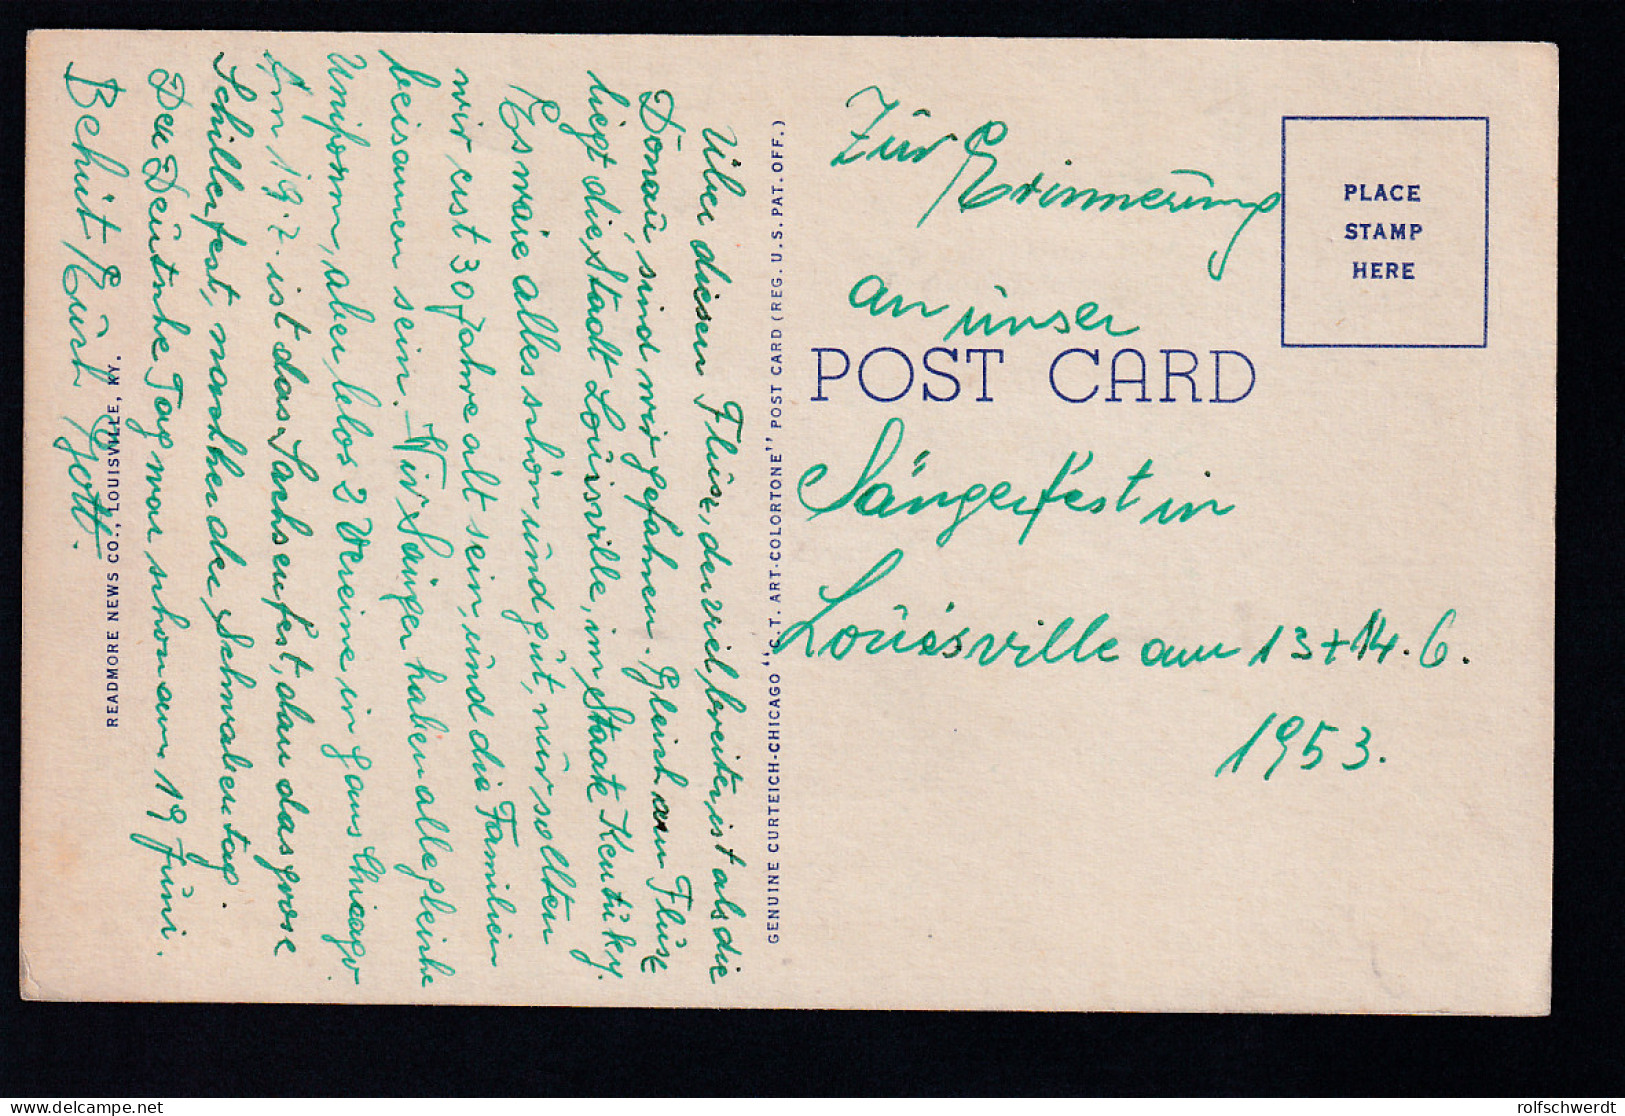 Über diesen Flüse, der viel breiter ist als die
Donau, sind wir gefahren. Gleich am Flüse
liegt die Stadt Louisville, im Staate Kentüky.
Es waie alles schön und güt, nur solten
wir erst 30 Jahre alt sein, und die Familien
beisamen sein. Wir Sänger haben alle gleiche
Uniform, aber lebos 2 Vereine in gans Chicago.
Am 19.7. ist das Sachsenfest, dan das grose
Schillerfest, nachher der Schwabentag.
Der Deutsche Tag war schon am 19 Juni.
Behüt Eüch Gott.
READMORE NEWS CO., LOUISVILLE, KY.
GENUINE CURTEICH-CHICAGO "C.T. ART-COLORTONE" POST CARD (REG. U.S. PAT. OFF.)
Zür Erinnerüng
an ünser
POST CARD
Sängerfest in
Louisville am 13 + 14. 6.
1953.
PLACE
STAMP
HERE
rolfschwerdt